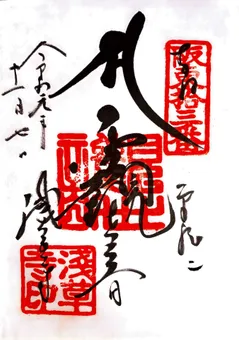 奉拝
坂東拾三番
聖観世音
金龍山
浅草寺
浅草寺印
令和元年
月七日